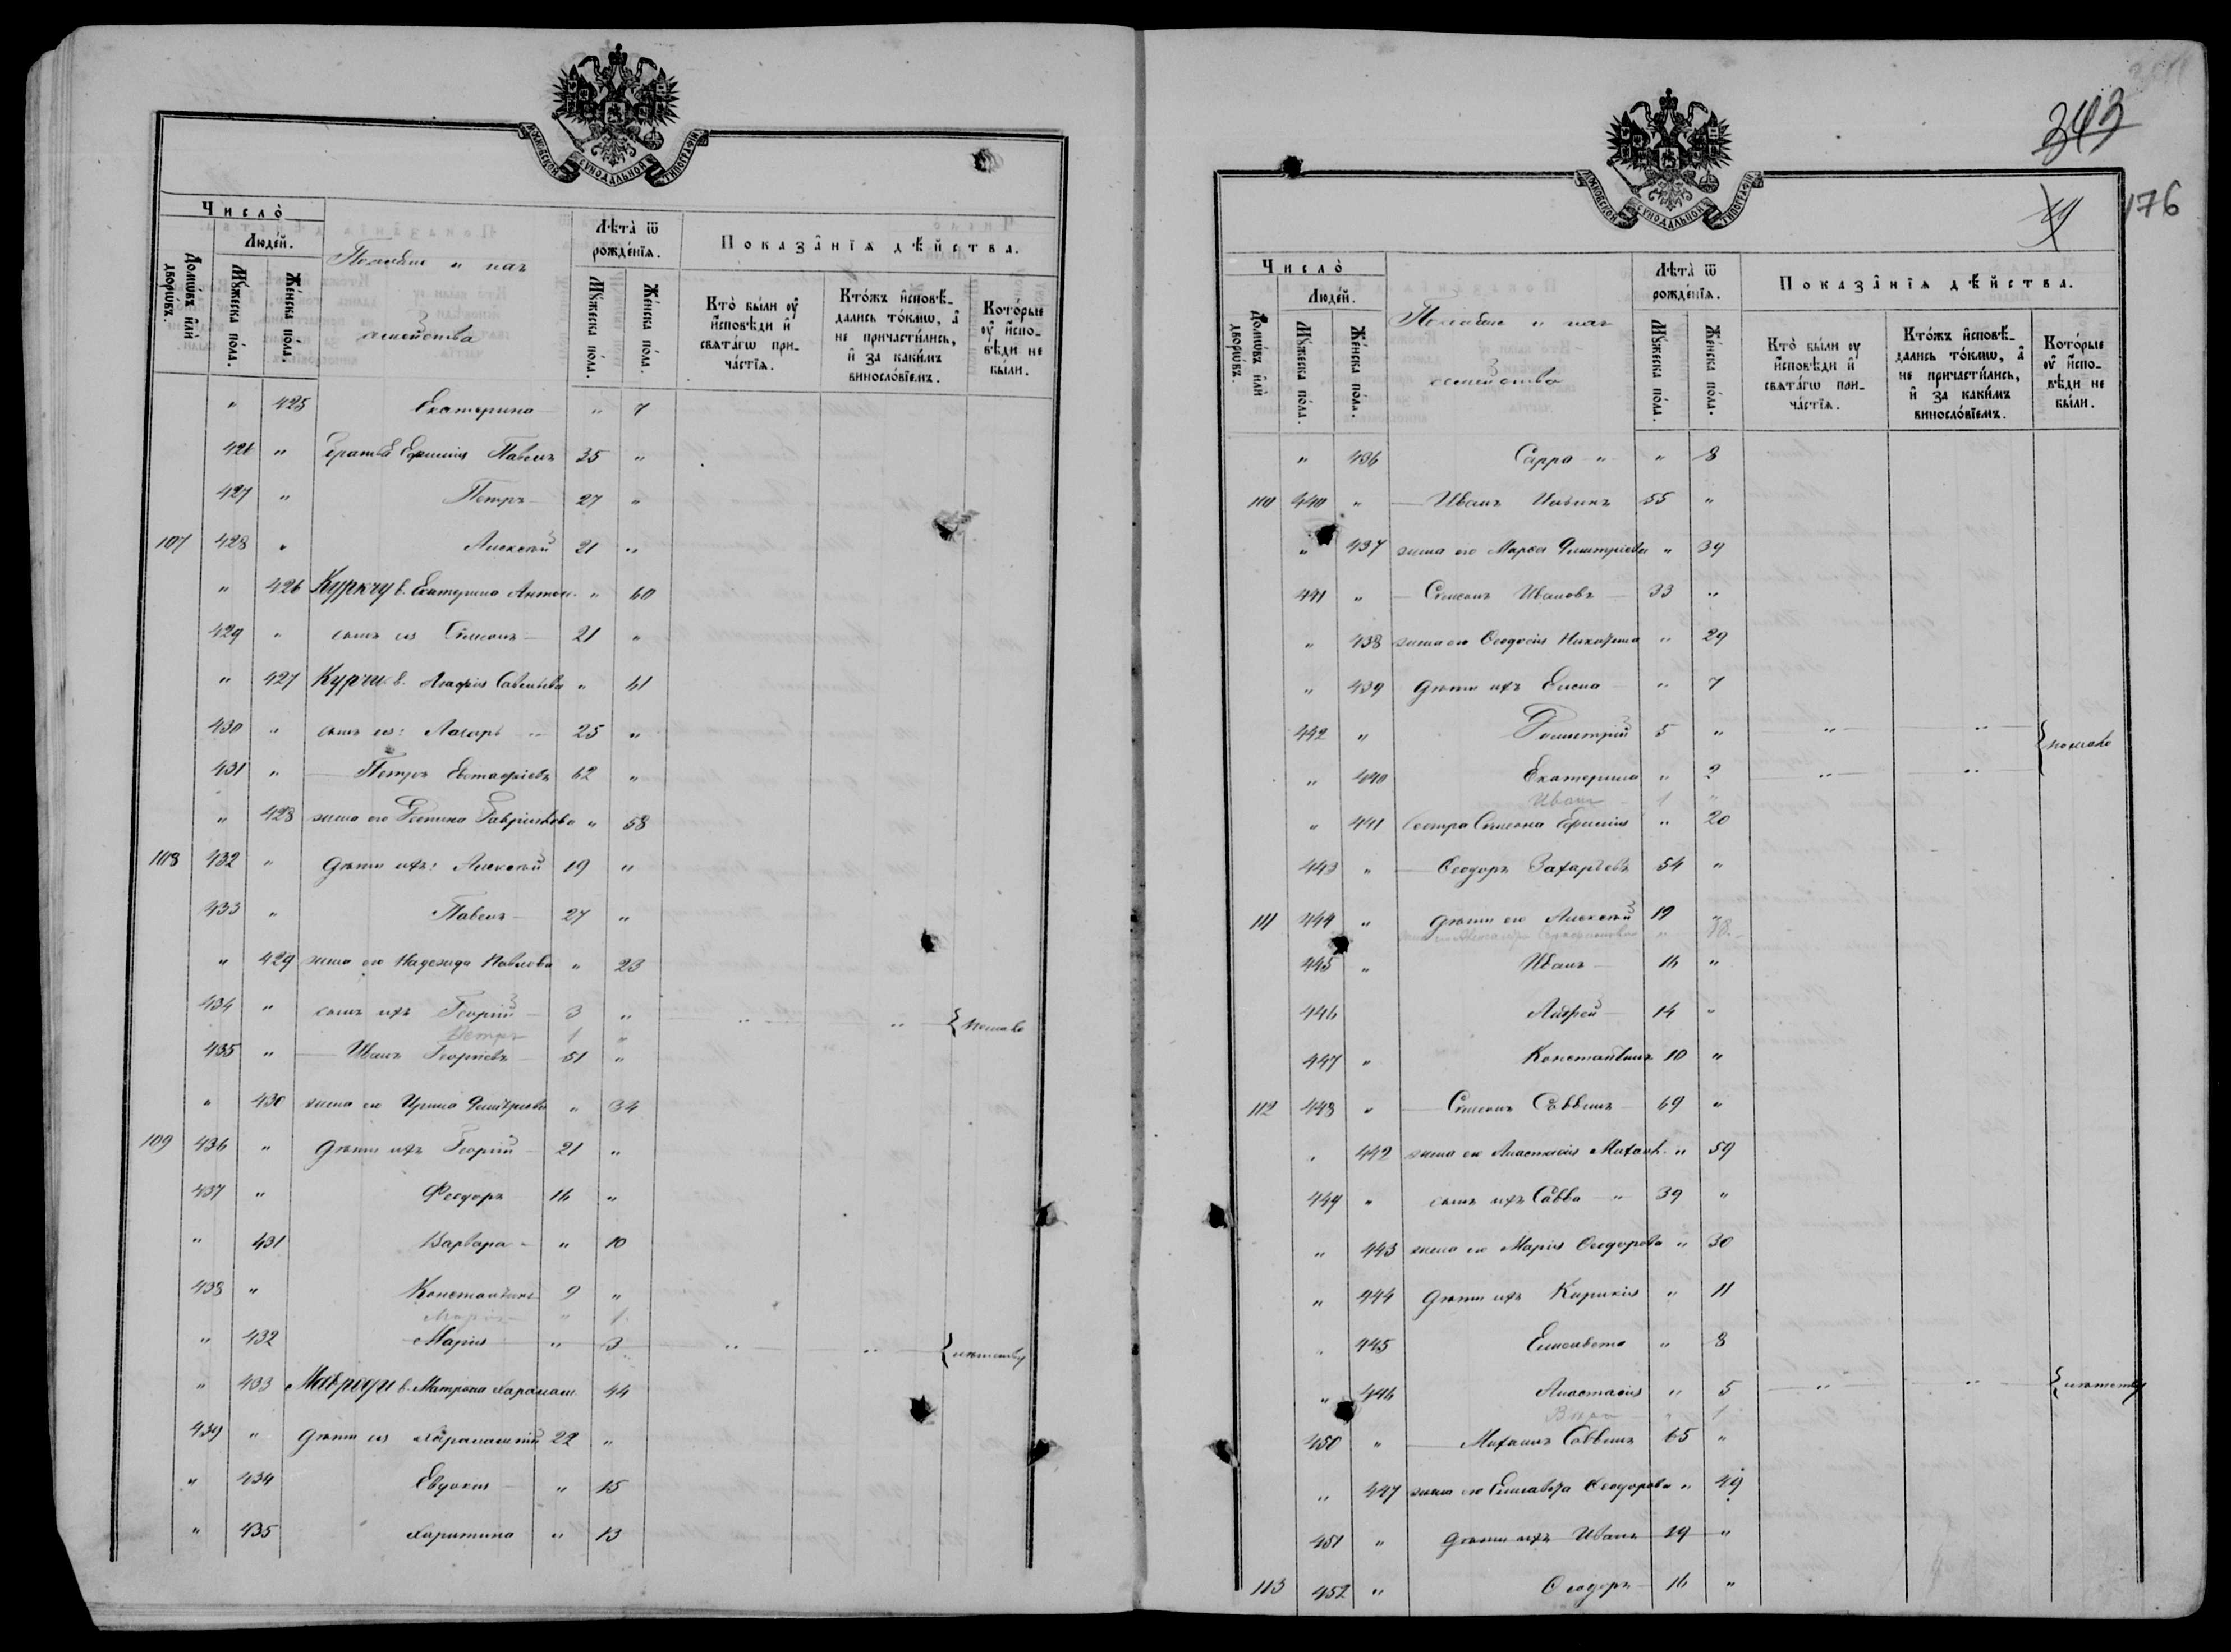 МОСКОВСКОЙ СѴНОДАЛЬНОЙ ТИПОГРАФІИ
Число̀
Людей.
Домѡ́въ и҆лѝ дворѡ́въ.
Мꙋ́жеска по́ла.
Же́нска по́ла.
семейства
Лѣ́та ѿ рожде́нїѧ.
Мꙋ́жеска по́ла.
Же́нска по́ла.
Показа̑нїѧ дѣ́йства.
Кто̀ бы́ли ᲂу҆ и҆́сповѣди и҆ свѧта́гѡ прича́стїѧ.
Кто́жъ и҆сповѣ́дались то́кмѡ, а҆ не причасти́лись, и҆ за каки́мъ винослО́вїемъ.
Кото́рые ᲂу҆ и҆́сповѣди не бы́ли.
" 425 Екатерина " 7
426 " Павелъ 35 "
427 " Петръ 27 "
107 428 " Алексѣй 21 "
" 426 Куркчу в. Екатерина Антон. " 60
429 " сынъ ея Сѷмеонъ 21 "
" 427 Курчи в. Агафія Савельева " 41
430 " сынъ ея: Лазарь 25 "
431 " Петръ Евстафіевъ 62 "
" 428 жена его Гавріилова " 58
108 432 " дѣти ихъ: Алексѣй 19 "
433 " Павелъ 27 "
" 429 жена его Надежда Павлова " 23
434 " сынъ ихъ Георгій 3 " " "
Петръ 1 "
435 " Иванъ Георгіевъ 51 "
" 430 жена его Ирина Димитріева " 34
109 436 " дѣти ихъ Георгій 21 "
437 " Феодоръ 16 "
" 431 Варвара " 10
438 " Константинъ 9 "
Марія " 1
" 432 Марія " 3 " "
" 433 Мавроди в. Матрона Харалам. 44
439 " дѣти ея Харалампій 22 "
" 434 Евдокія " 15
" 435 Харитина " 13
343
176
МОСКОВСКОЙ СѴНОДАЛЬНОЙ ТИПОГРАФІИ
Число̀
Людей.
Домѡ́въ и҆лѝ дворѡ́въ.
Мꙋ́жеска по́ла.
Же́нска по́ла.
семейства
Лѣ́та ѿ рожде́нїѧ.
Мꙋ́жеска по́ла.
Же́нска по́ла.
Показа̑нїѧ дѣ́йства.
Кто̀ бы́ли ᲂу҆ и҆́сповѣди и҆ свѧта́гѡ прича́стїѧ.
Кто́жъ и҆сповѣ́дались то́кмѡ, а҆ не причасти́лись, и҆ за каки́мъ винослО́вїемъ.
Кото́рые ᲂу҆ и҆́сповѣди не бы́ли.
" 436 Сарра " " 8
110 440 " Иванъ 55 "
" 437 жена его Марѳа Димитріева " 39
441 " Сѷмеонъ Ивановъ 33 "
" 438 жена его Ѳеодосія " 29
" 439 дѣти ихъ Елена " 7
442 " Димитрій 5 " " "
" 440 Екатерина " 2 " "
Иванъ 1 "
" 441 Сестра Сѷмеона " 20
443 " Ѳеодоръ Захарьевъ 54 "
111 444 " дѣти его Алексѣй 19 "
445 " Иванъ 16 "
446 Андрей 14 "
447 " Константинъ 10 "
112 448 " Сѷмеонъ Саввинъ 69 "
" 442 жена его Анастасія Михаил. " 59
449 " сынъ ихъ Савва " 39 "
" 443 жена его Марія Ѳеодорова " 30
" 444 дѣти ихъ " 11
" 445 Елисавета " 8
" 446 Анастасія " 5 " "
Вѣра " 1
450 " Михаилъ Саввинъ 65 "
" 447 жена его Елисавета Ѳеодорова " 49
451 " дѣти ихъ Иванъ 19 "
113 452 " Ѳеодоръ 16 "